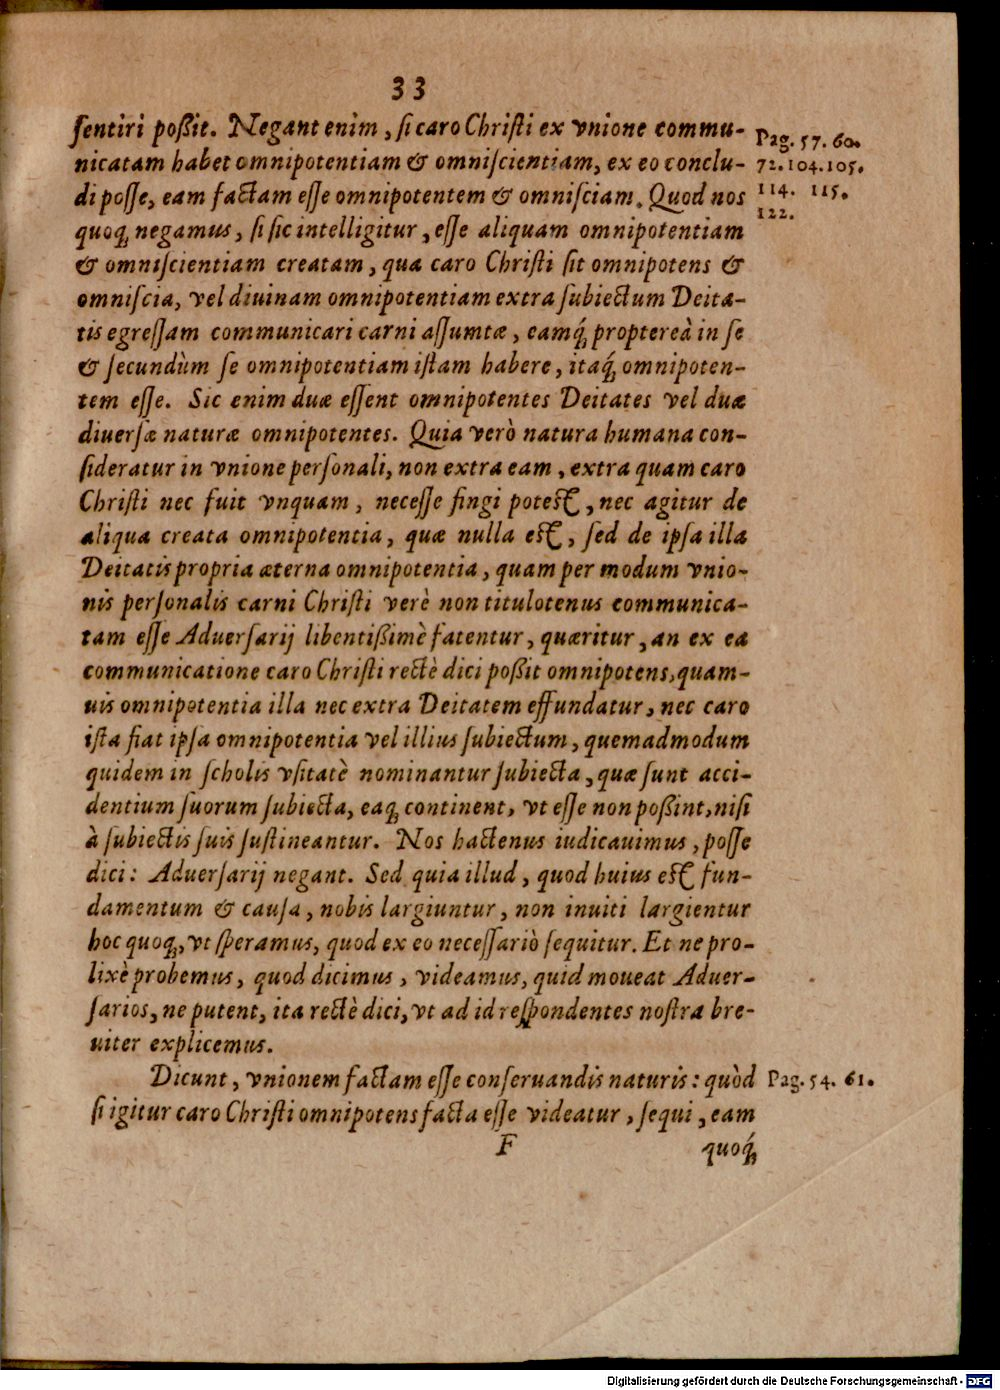 33
ſentiri poßit. Negant enim, ſi caro Chriſti ex vnione commu-
Pag. 57. 60.
nicatam habet omnipotentiam & omniſcientiam, ex eo conclu-
72. 104. 105.
di poſſe, eam factam eſſe omnipotentem & omniſciam. Quod nos
114. 115.
122.
quoq́ negamus, ſi ſic intelligitur, eſſe aliquam omnipotentiam
& omniſcientiam creatam, qua caro Chriſti ſit omnipotens &
omniſcia, vel diuinam omnipotentiam extra ſubiectum Deita-
tis egreſſam communicari carni aſſumtæ, eamq́ propterea̍ in ſe
& ſecundùm ſe omnipotentiam iſtam habere, itaq́ omnipoten-
tem eſſe. Sic enim duæ eſſent omnipotentes Deitates vel duæ
diuerſæ naturæ omnipotentes. Quia verò natura humana con-
ſideratur in vnione perſonali, non extra eam, extra quam caro
Chriſti nec fuit vnquam, neceſſe fingi poteſt, nec agitur de
aliqua creata omnipotentia, quæ nulla eſt, ſed de ipſa illa
Deitatis propria æterna omnipotentia, quam per modum vnio-
nis perſonalis carni Chriſti verè non titulotenus communica-
tam eſſe Aduerſarij libentißimè fatentur, quæritur, an ex ea
communicatione caro Chriſti rectè dici poßit omnipotens, quam-
uis omnipotentia illa nec extra Deitatem effundatur, nec caro
iſta fiat ipſa omnipotentia vel illius ſubiectum, quemadmodum
quidem in ſcholis vſitatè nominantur ſubiecta, quæ ſunt acci-
dentium ſuorum ſubiecta, eaq́ continent, vt eſſe non poßint, niſi
à ſubiectis ſuis ſuſtineantur. Nos hactenus iudicauimus, poſſe
dici: Aduerſarij negant. Sed quia illud, quod huius eſt fun-
damentum & cauſa, nobis largiuntur, non inuiti largientur
hoc quoq́, vt ſperamus, quod ex eo neceſſariò ſequitur. Et ne pro-
lixè probemus, quod dicimus, videamus, quid moueat Aduer-
ſarios, ne putent, ita rectè dici, vt ad id reſpondentes noſtra bre-
uiter explicemus.
Dicunt, vnionem factam eſſe conſeruandis naturis: quòd
Pag. 54. 61.
ſi igitur caro Chriſti omnipotens facta eſſe videatur, ſequi, eam
F
quoq́
Digitalisierung gefördert durch die Deutsche Forschungsgemeinschaft - DFG